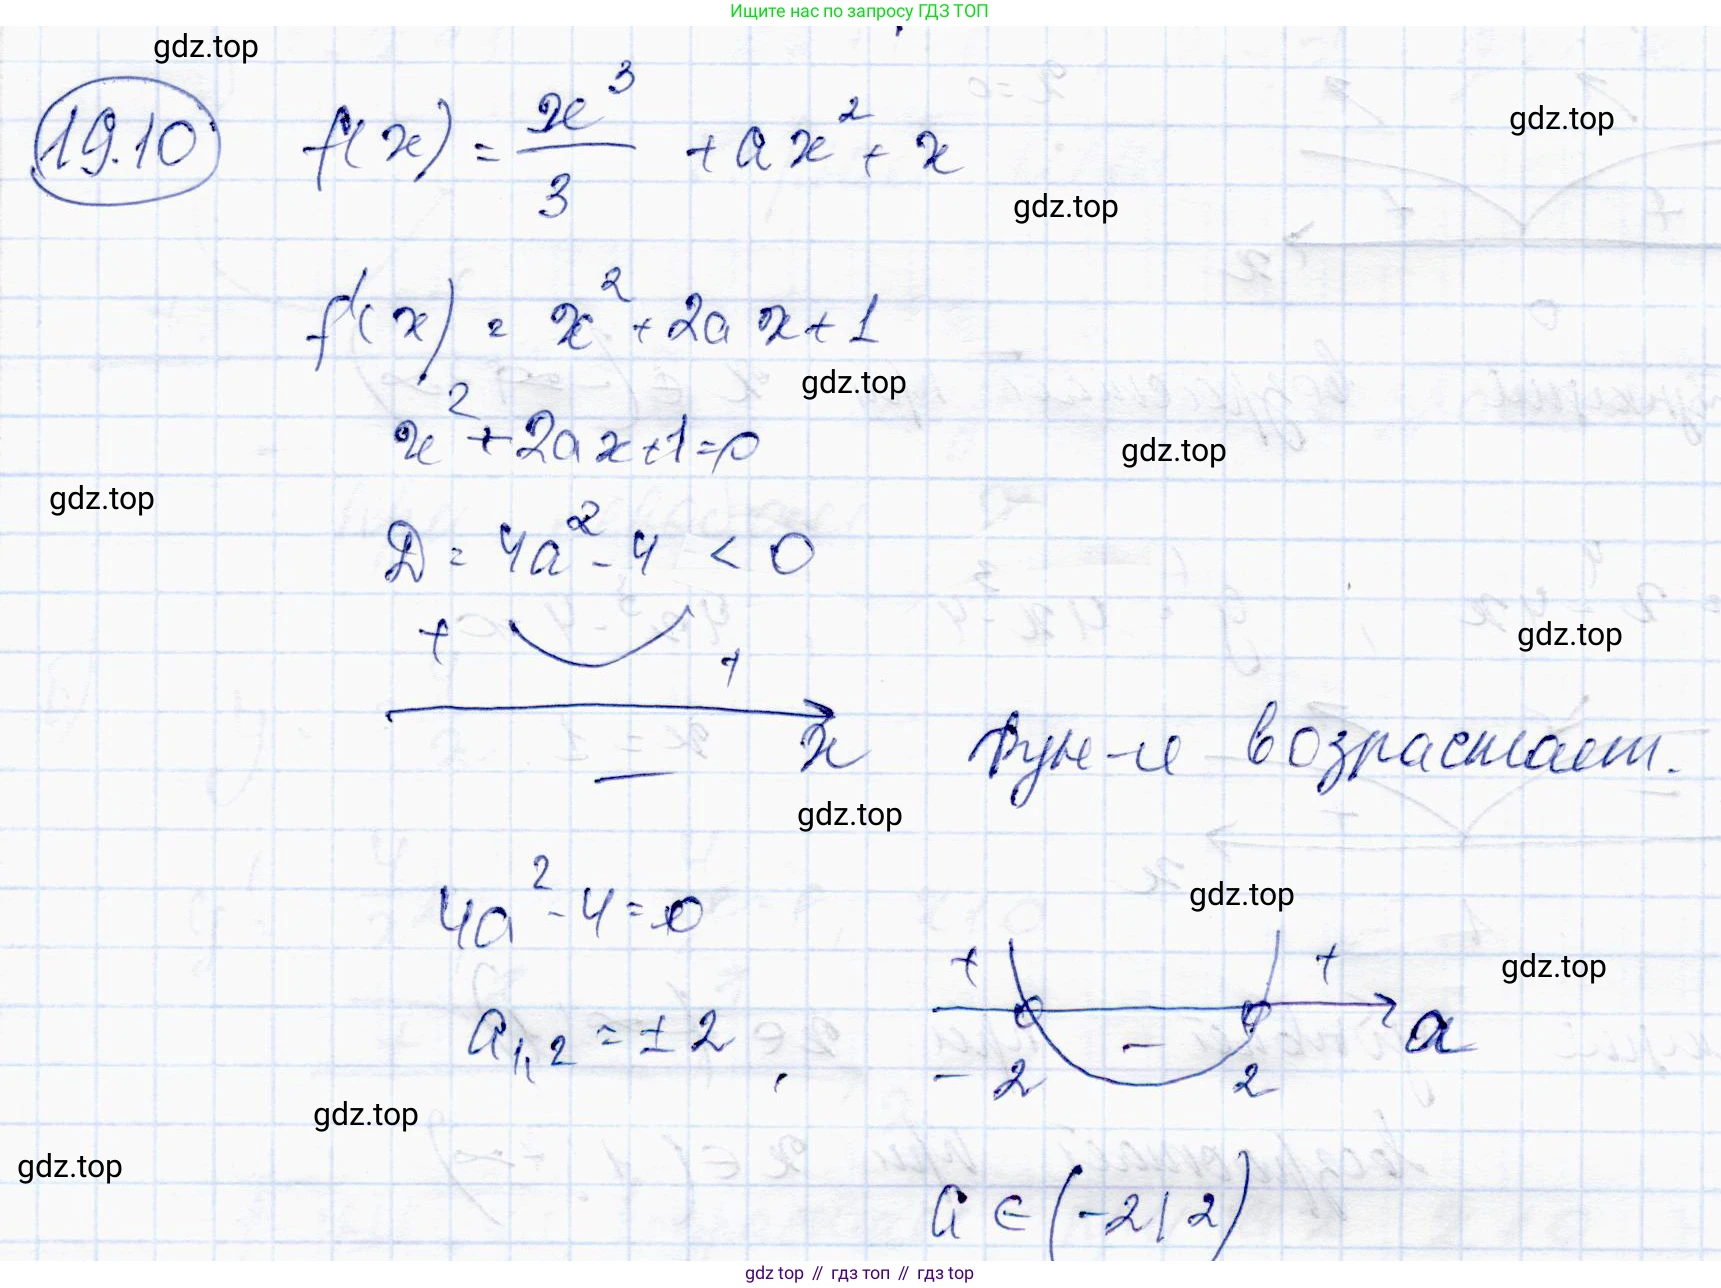 Ищите нас по запросу ГДЗ ТОП
gdz.top
19.10 f(x) = x³/3 + ax² + x
gdz.top
gdz.top
f'(x) = x² + 2ax + 1
gdz.top
x² + 2ax + 1 = 0
gdz.top
gdz.top
D = 4a² - 4 < 0
gdz.top
+ +
x Фун-я возрастает.
−
gdz.top
4a² - 4 = 0
gdz.top
+ + gdz.top
a₁,₂ = ± 2, − a
-2 2
gdz.top
gdz.top
a ∈ (-2; 2)
gdz top // гдз топ // гдз top